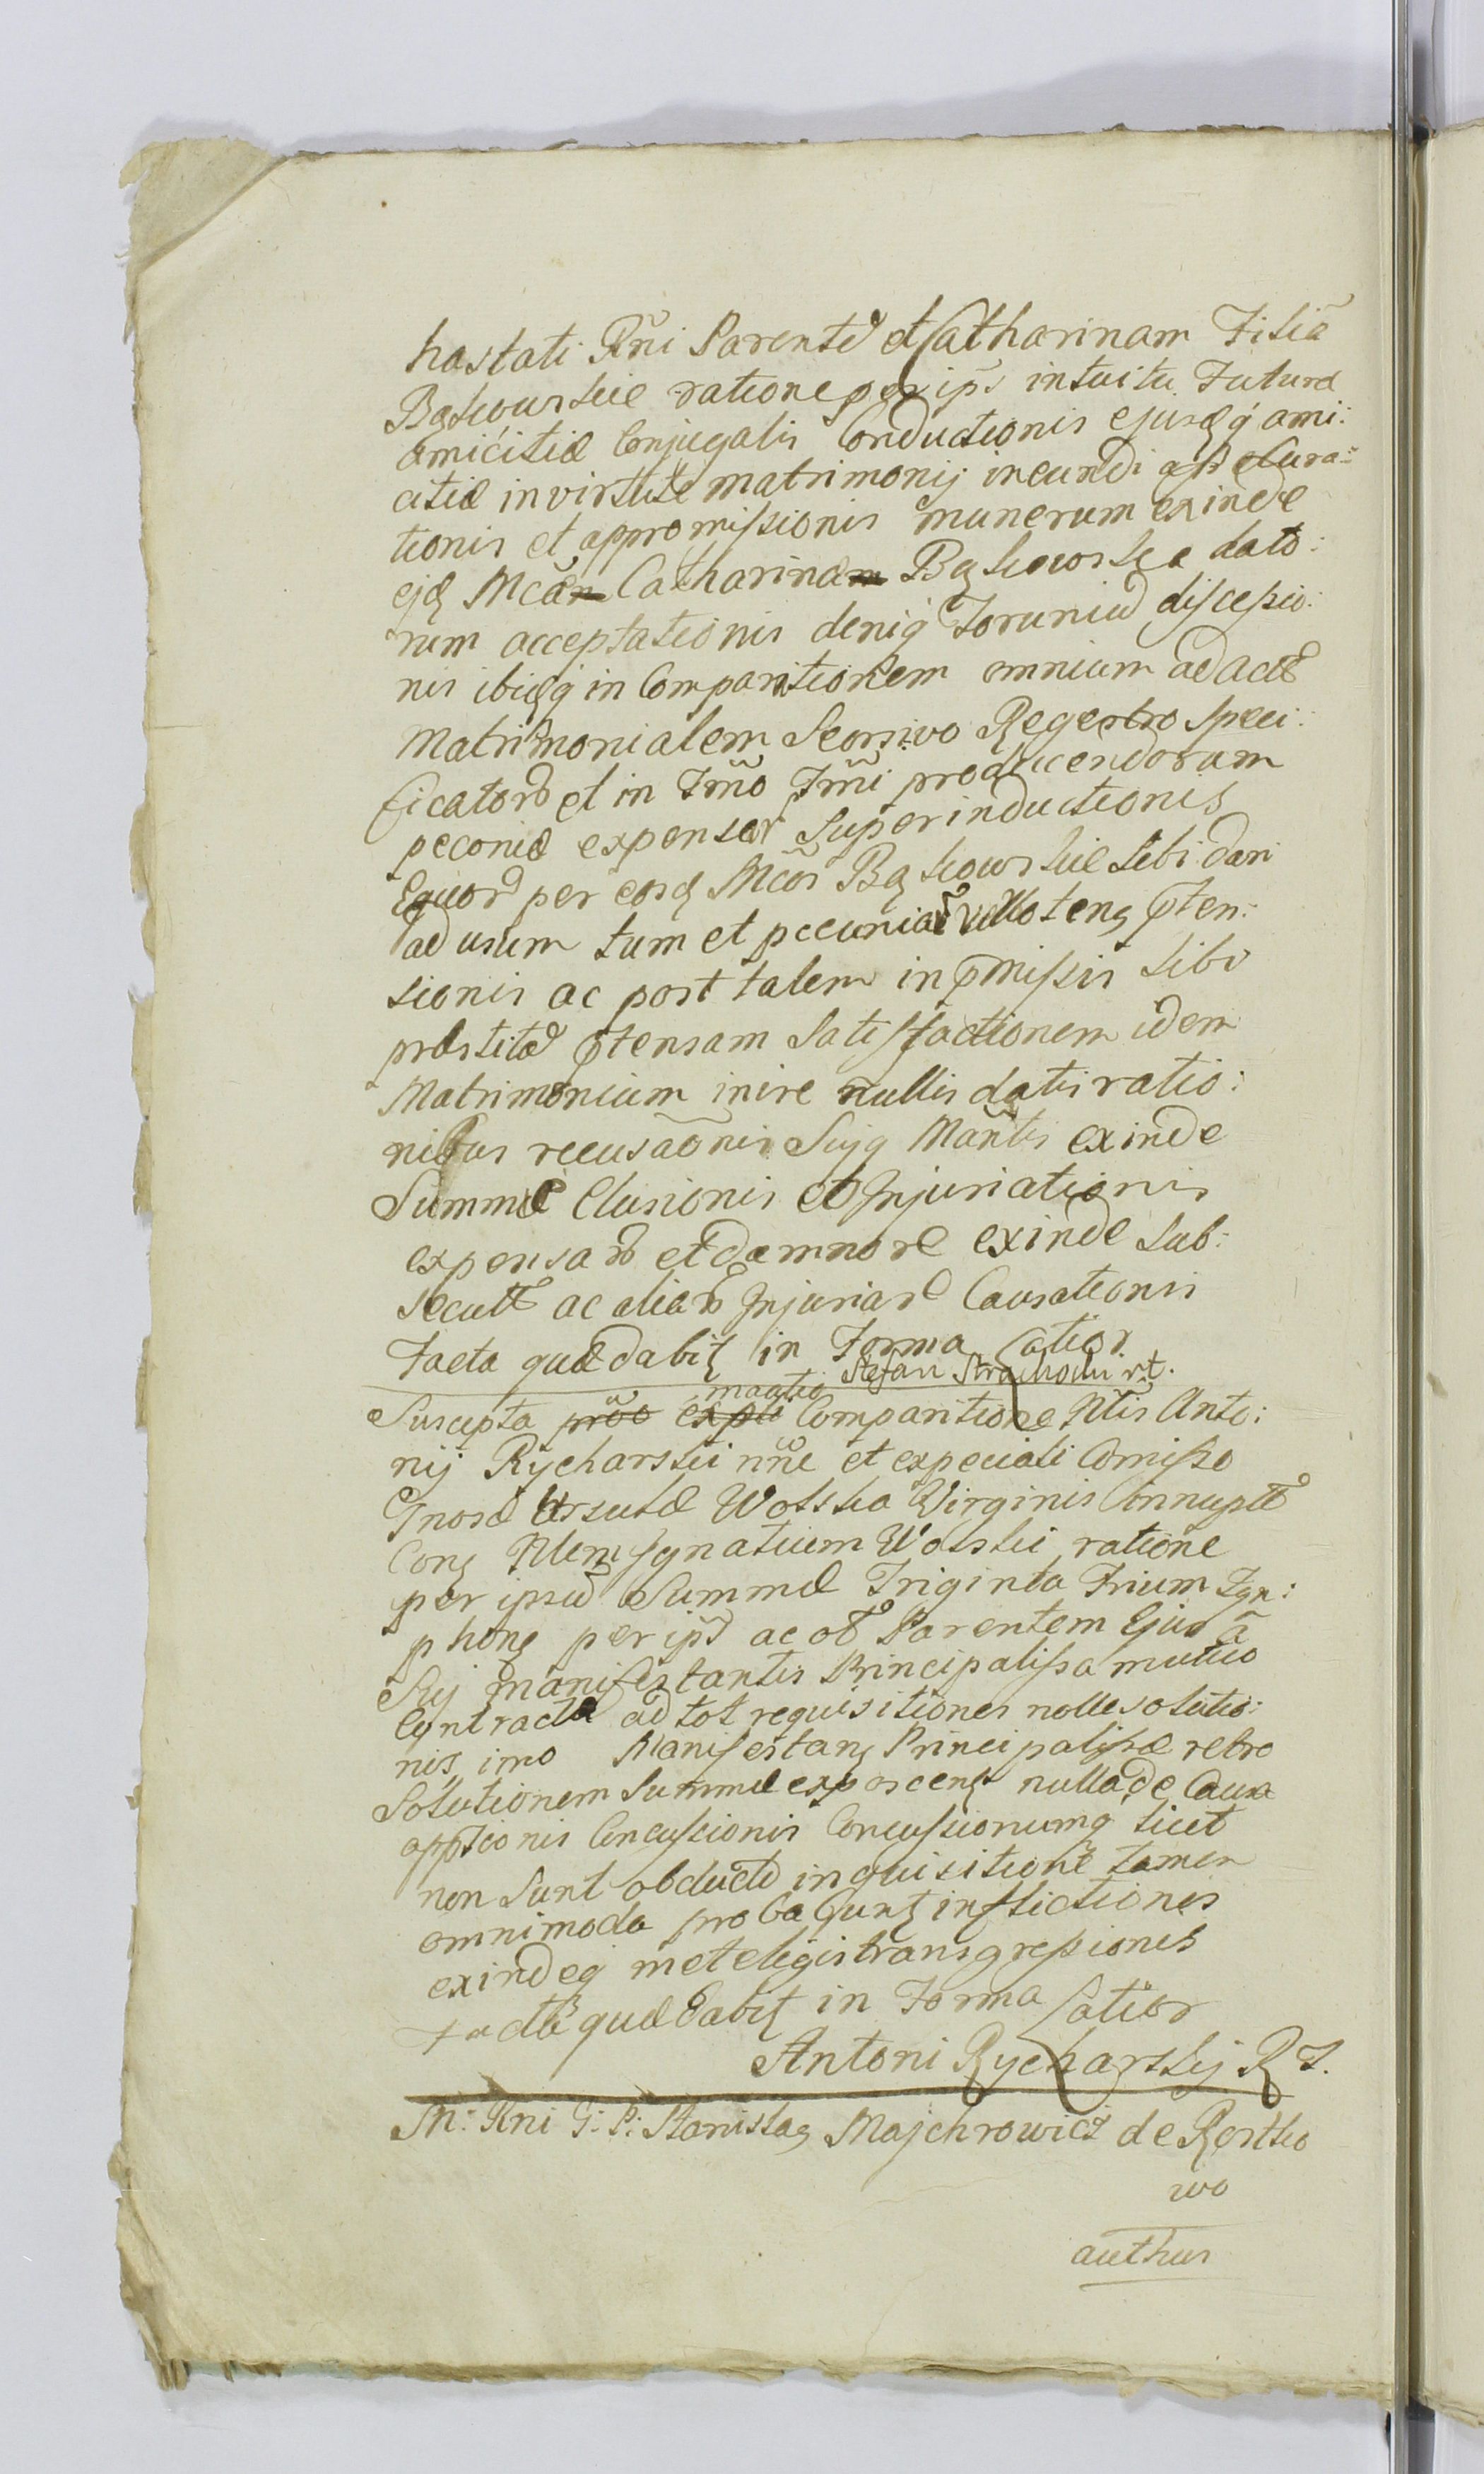 hastati Rñi Parentē et Catharinam Filiã
Bąkowskie ratione per ip̃s intuitu Futuræ
amicitiæ Conjugalis Conductionis ejusq́ ami:
citiæ in virtute matrimonij ineundi assecura:
tionis et appromissionis munerum exinde
Mcæ Catharinæ Bąkowska dato:
rum acceptationis deniq́ Toruniū discessio:
nis ibidq́ in Comparitionem omnium ad actū
Matrimonialem Seorsivo Regestro speci:
ficatorū et in Tm̃o Tm̃i producendorum
peconiæ expensar Superinductionis
Equorū per Mcos Bąkowskie sibi dari
ad usum tum et pecuniar̃ ten:
sionis ac post talem in p̃missis sibi
præstitā p̃tensam Satisfactionem idem
Matrimonium inire nullis datis ratio:
nibus recusãonis Suiq Mañtis exinde
Summæ Elusionis et Injuriationis
expensarū et damnorū exinde sub:
secutū ac aliarū Injuriarū Causationis
Facta quæ dabit in Forma Latior.
Stefan Strachocki r.t.
Suscepta Comparitione Nlis Anto:
nij Rycharski nñe et expeciali Comisso
Gnosæ Ursulæ Wolska Virginis Innuptæ
Con Nlem Ignatium Wolski ratione
per ipsū Summæ Triginta Trium Tyn:
phon per ip̃ū ac Parentem Ejus ã
Suj manifestantis Principalissa mutuo
Contractæ ad tot requisitiones nolle solutio:
nis, imo Manifestan Principalissæ retro
Solutionem Summæ exposcen nulla de Causa
opp̃ionis Concussionis Concussionumq́ sicut
non sunt obductæ inquisitionē tamen
omnimoda infflictiones
exindeq́ met legis transgressiones
Facta quæ dabit in Forma Latior
Antoni Rycharskij R T.
M: Rni G: P: Stanislaᵹ Majchrowicz de Rostko
wo
authus